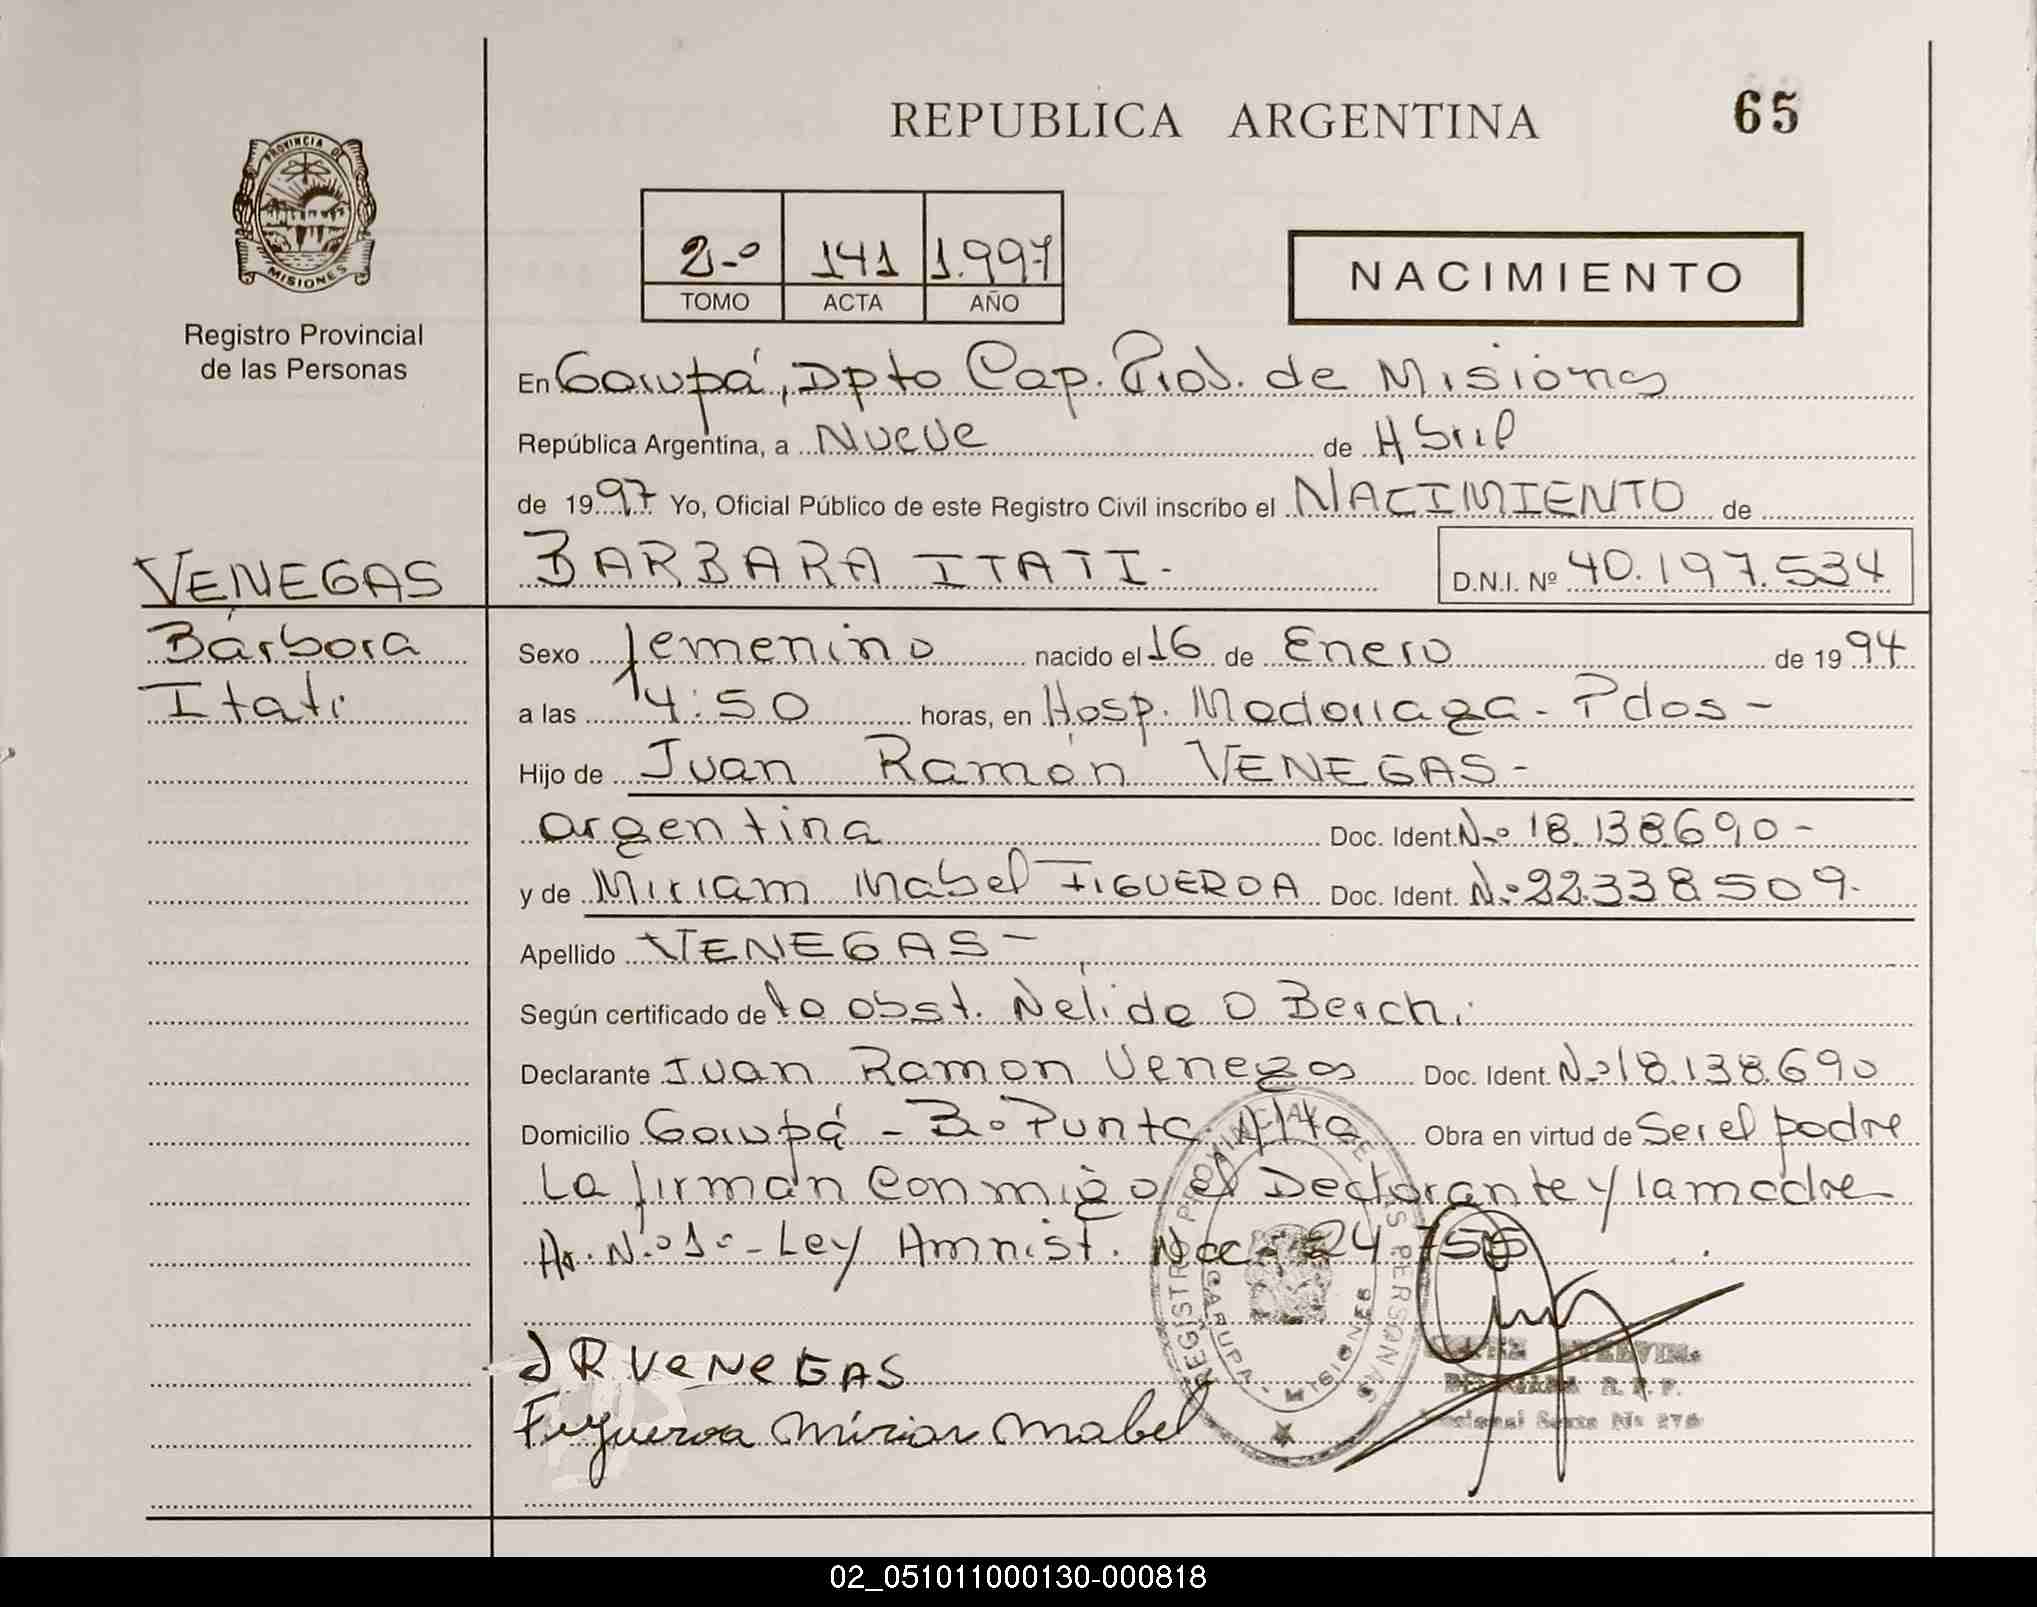 REPUBLICA ARGENTINA
65
PROVINCIA DE
MISIONES
Registro Provincial
de las Personas
2-º 141 1.997
TOMO ACTA AÑO
NACIMIENTO
En Garupá, Dpto Cap. Prov. de Misiones
República Argentina, a Nueve de Abril
de 1997 Yo, Oficial Público de este Registro Civil inscribo el NACIMIENTO de
VENEGAS
BARBARA ITATI-
D.N.I. Nº 40.197.534
Bárbara
Sexo femenino nacido el 16 de Enero de 1994
Itati
a las 14:50 horas, en Hosp. Madariaga - Pdas -
Hijo de Juan Ramón VENEGAS-
argentina Doc. Ident. N-º 18.138690-
y de Miriam Mabel FIGUEROA Doc. Ident. N-º 22.338509-
Apellido VENEGAS-
Según certificado de la obst. Nelida O
Declarante Juan Ramon Venegas Doc. Ident. N-º 18.138.690
Domicilio Garupá - B-º Punta Alta Obra en virtud de Ser el padre
La firman conmigo el Declarante y la madre
N-º 1º- Ley Amnist. Nac- 24.755
J R VENEGAS
Figueroa Mirian Mabel
REGISTRO PROVINCIAL DE LAS PERSONAS
GARUPA - MISIONES
02_051011000130-000818